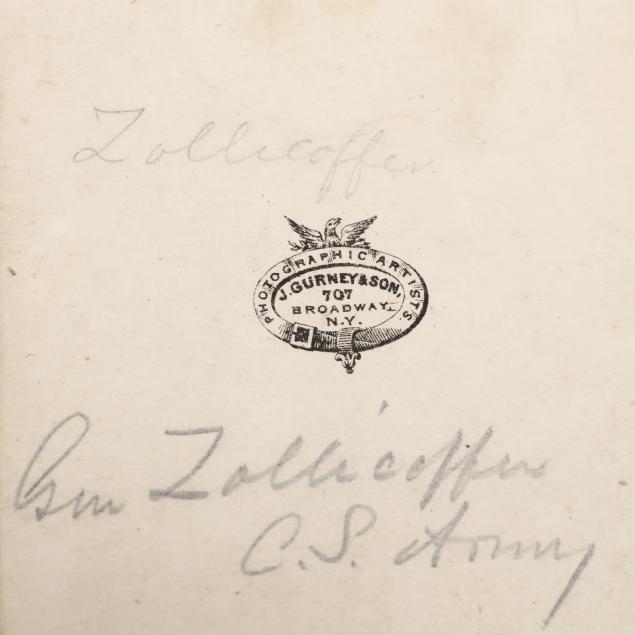 Zollicoffer
PHOTOGRAPHIC ARTISTS.
J. GURNEY & SON,
707
BROADWAY,
N.Y.
Gen Zollicoffer
C. S. Army